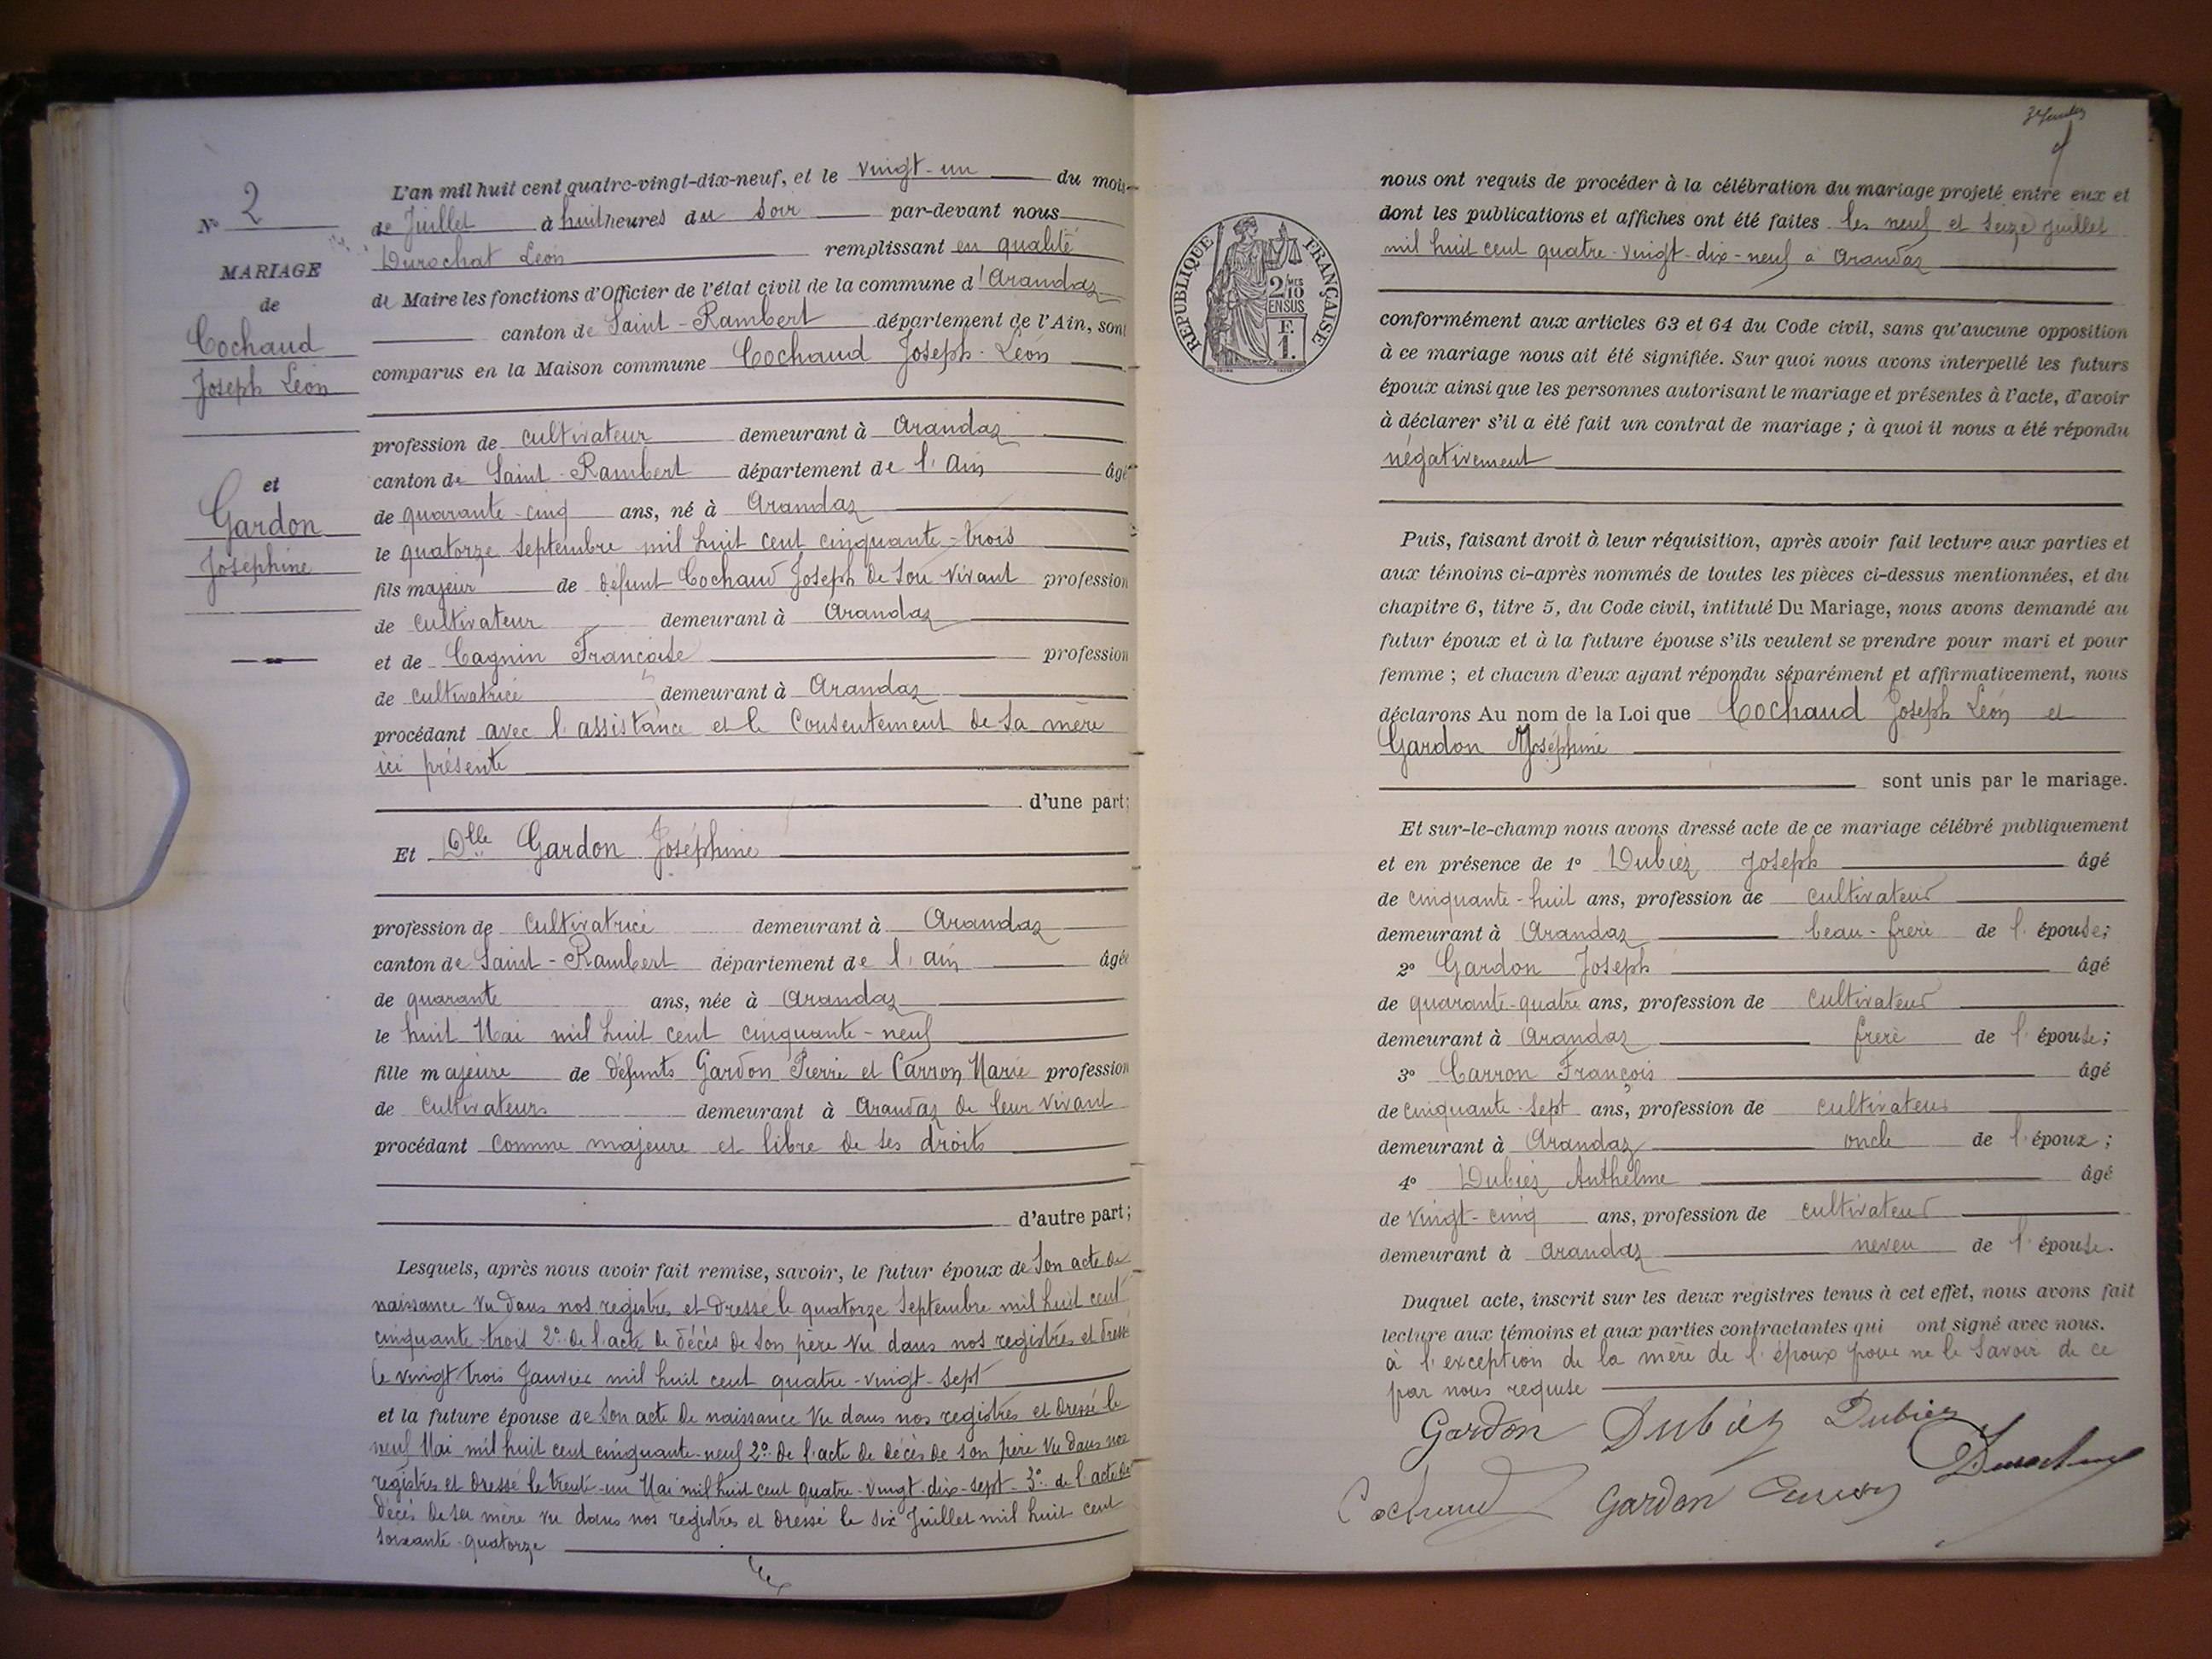 Nº 2
MARIAGE
de
Cochaud
Joseph Léon
et
Gardon
Joséphine
L'an mil huit cent quatre-vingt-dix-neuf, et le vingt-un du mois
de Juillet à huit heures du soir par-devant nous
Durochat Léon remplissant en qualité
de Maire les fonctions d'Officier de l'état civil de la commune d'Arandaz
canton de Saint-Rambert département de l'Ain, sont
comparus en la Maison commune Cochaud Joseph-Léon
profession de cultivateur demeurant à Arandaz
canton de Saint-Rambert département de l'Ain âgé
de quarante-cinq ans, né à Arandaz
le quatorze septembre mil huit cent cinquante-trois
fils majeur de défunt Cochaud Joseph de son vivant profession
de cultivateur demeurant à Arandaz
et de Cagnin Françoise profession
de cultivatrice demeurant à Arandaz
procédant avec l'assistance et le consentement de sa mère
ici présente
d'une part;
Et Dlle Gardon Joséphine
profession de cultivatrice demeurant à Arandaz
canton de Saint-Rambert département de l'Ain âgée
de quarante ans, née à Arandaz
le huit Mai mil huit cent cinquante-neuf
fille majeure de défunts Gardon Pierre et Carron Marie profession
de cultivateurs demeurant à Arandaz de leur vivant
procédant comme majeure et libre de ses droits
d'autre part;
Lesquels, après nous avoir fait remise, savoir, le futur époux de son acte de
naissance vu dans nos registres et dressé le quatorze septembre mil huit cent
cinquante-trois 2º de l'acte de décès de son père vu dans nos registres et dressé
le vingt-trois Janvier mil huit cent quatre-vingt-sept
et la future épouse de son acte de naissance vu dans nos registres et dressé le
neuf Mai mil huit cent cinquante-neuf 2º de l'acte de décès de son père vu dans nos
registres et dressé le trente-un Mai mil huit cent quatre-vingt-dix-sept - 3º de l'acte de
décès de sa mère vu dans nos registres et dressé le six Juillet mil huit cent
soixante-quatorze
RÉPUBLIQUE FRANÇAISE
2 MES
10
EN SUS
F.
1.
nous ont requis de procéder à la célébration du mariage projeté entre eux et
dont les publications et affiches ont été faites les neuf et seize juillet
mil huit cent quatre-vingt-dix-neuf à Arandaz
conformément aux articles 63 et 64 du Code civil, sans qu'aucune opposition
à ce mariage nous ait été signifiée. Sur quoi nous avons interpellé les futurs
époux ainsi que les personnes autorisant le mariage et présentes à l'acte, d'avoir
à déclarer s'il a été fait un contrat de mariage ; à quoi il nous a été répondu
négativement
Puis, faisant droit à leur réquisition, après avoir fait lecture aux parties et
aux témoins ci-après nommés de toutes les pièces ci-dessus mentionnées, et du
chapitre 6, titre 5, du Code civil, intitulé Du Mariage, nous avons demandé au
futur époux et à la future épouse s'ils veulent se prendre pour mari et pour
femme ; et chacun d'eux ayant répondu séparément et affirmativement, nous
déclarons Au nom de la Loi que Cochaud Joseph Léon et
Gardon Joséphine
sont unis par le mariage.
Et sur-le-champ nous avons dressé acte de ce mariage célébré publiquement
et en présence de 1º Dubiez Joseph âgé
de cinquante-huit ans, profession de cultivateur
demeurant à Arandaz beau-frère de l'épouse;
2º Gardon Joseph âgé
de quarante-quatre ans, profession de cultivateur
demeurant à Arandaz frère de l'épouse;
3º Carron François âgé
de cinquante-sept ans, profession de cultivateur
demeurant à Arandaz oncle de l'époux ;
4º Dubiez Anthelme âgé
de vingt-cinq ans, profession de cultivateur
demeurant à Arandaz neveu de l'épouse.
Duquel acte, inscrit sur les deux registres tenus à cet effet, nous avons fait
lecture aux témoins et aux parties contractantes qui ont signé avec nous.
à l'exception de la mère de l'époux pour ne le savoir de ce
par nous requise
Gardon Dubiez Dubiez
Cochaud Gardon